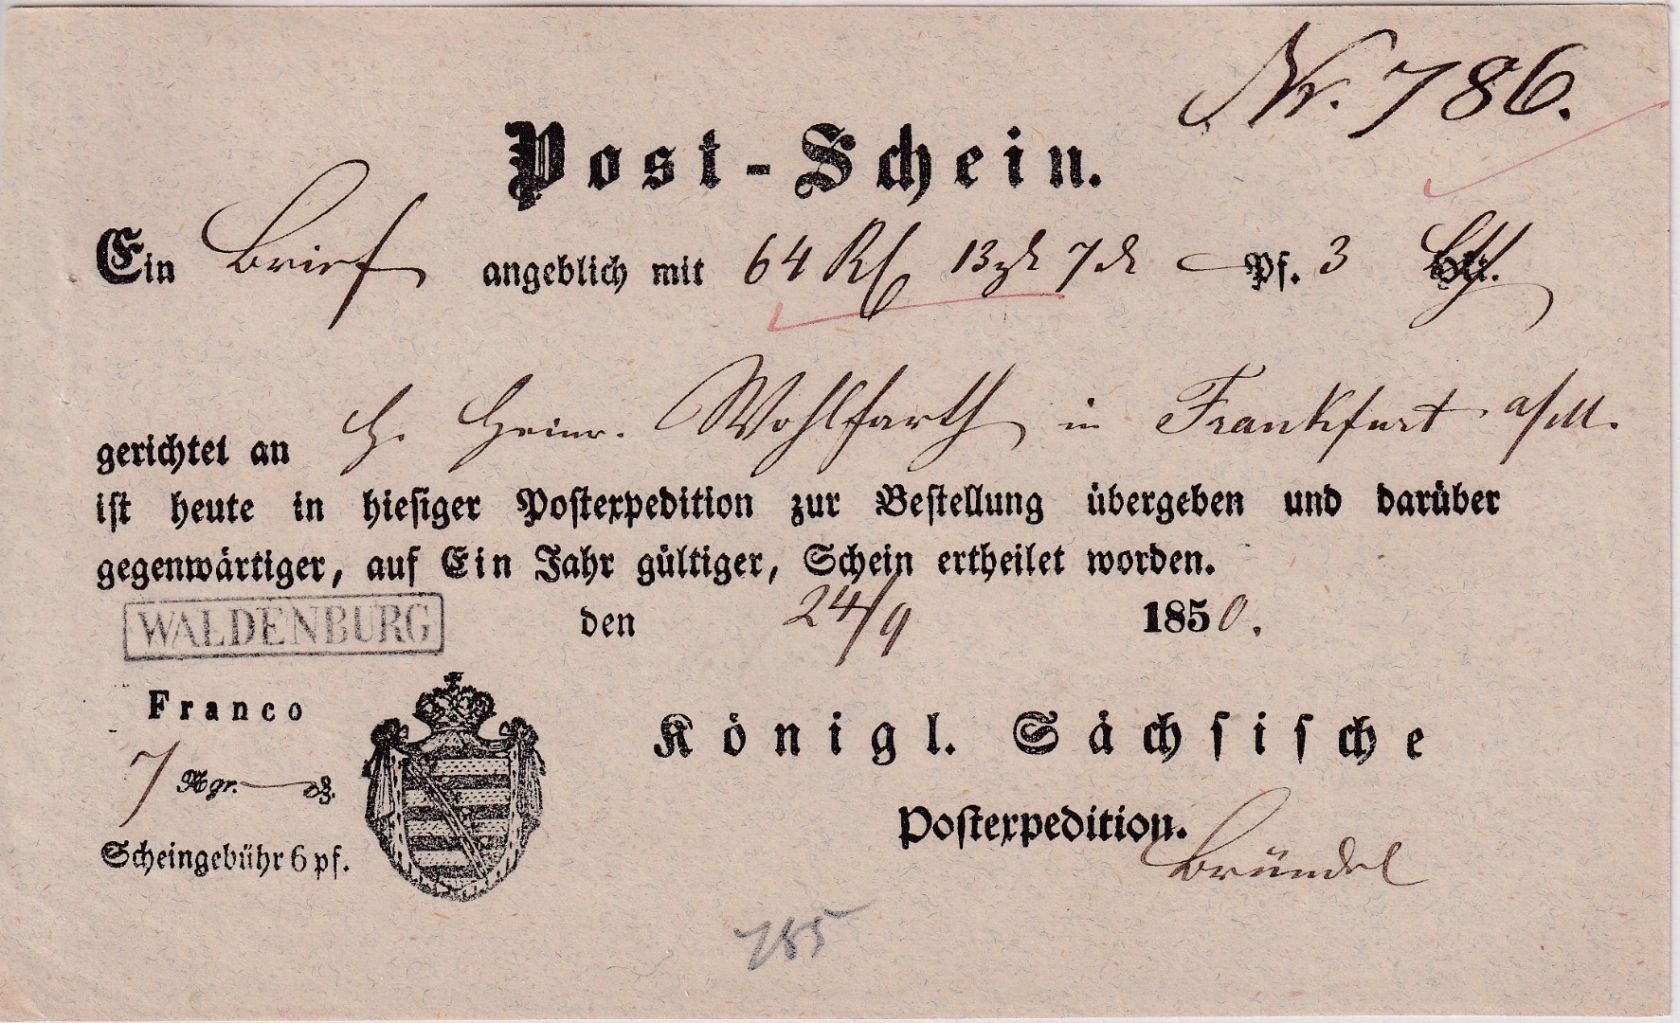 Nr. 786.
Post-Schein.
Ein Brief angeblich mit 64 13 7 Pf. 3
gerichtet an H. Heinr. Wohlfarth in Frankfurt a/M.
ist heute in hiesiger Postexpedition zur Bestellung übergeben und darüber
gegenwärtiger, auf Ein Jahr gültiger, Schein ertheilet worden.
WALDENBURG den 24/9 1850.
Franco
7 Ngr. — ₰.
Scheingebühr 6 pf.
Königl. Sächsische
Postexpedition.
Bründel
785